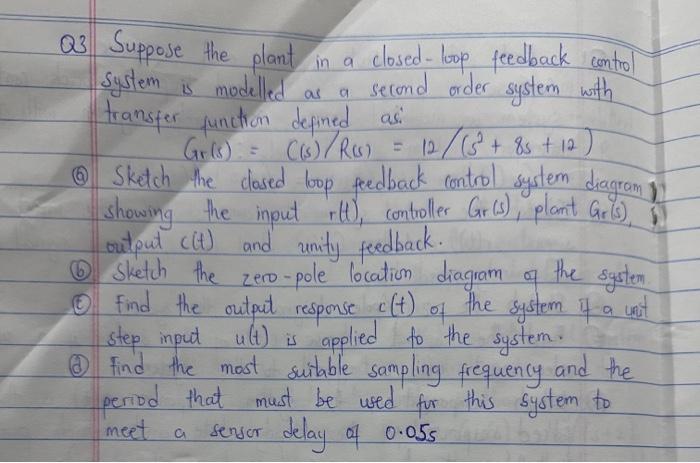 Q3 Suppose the plant in a closed-loop feedback control
system is modelled as a second order system with
transfer function defined as:
Gr(s) := C(s)/R(s) = 12/(s² + 8s + 12)
ⓐ Sketch the closed loop feedback control system diagram
showing the input r(t), controller Gr(s), plant Gr(s),
output c(t) and unity feedback.
ⓑ Sketch the zero-pole location diagram of the system
ⓒ Find the output response c(t) of the system if a unit
step input u(t) is applied to the system.
ⓓ Find the most suitable sampling frequency and the
period that must be used for this system to
meet a sensor delay of 0.05s